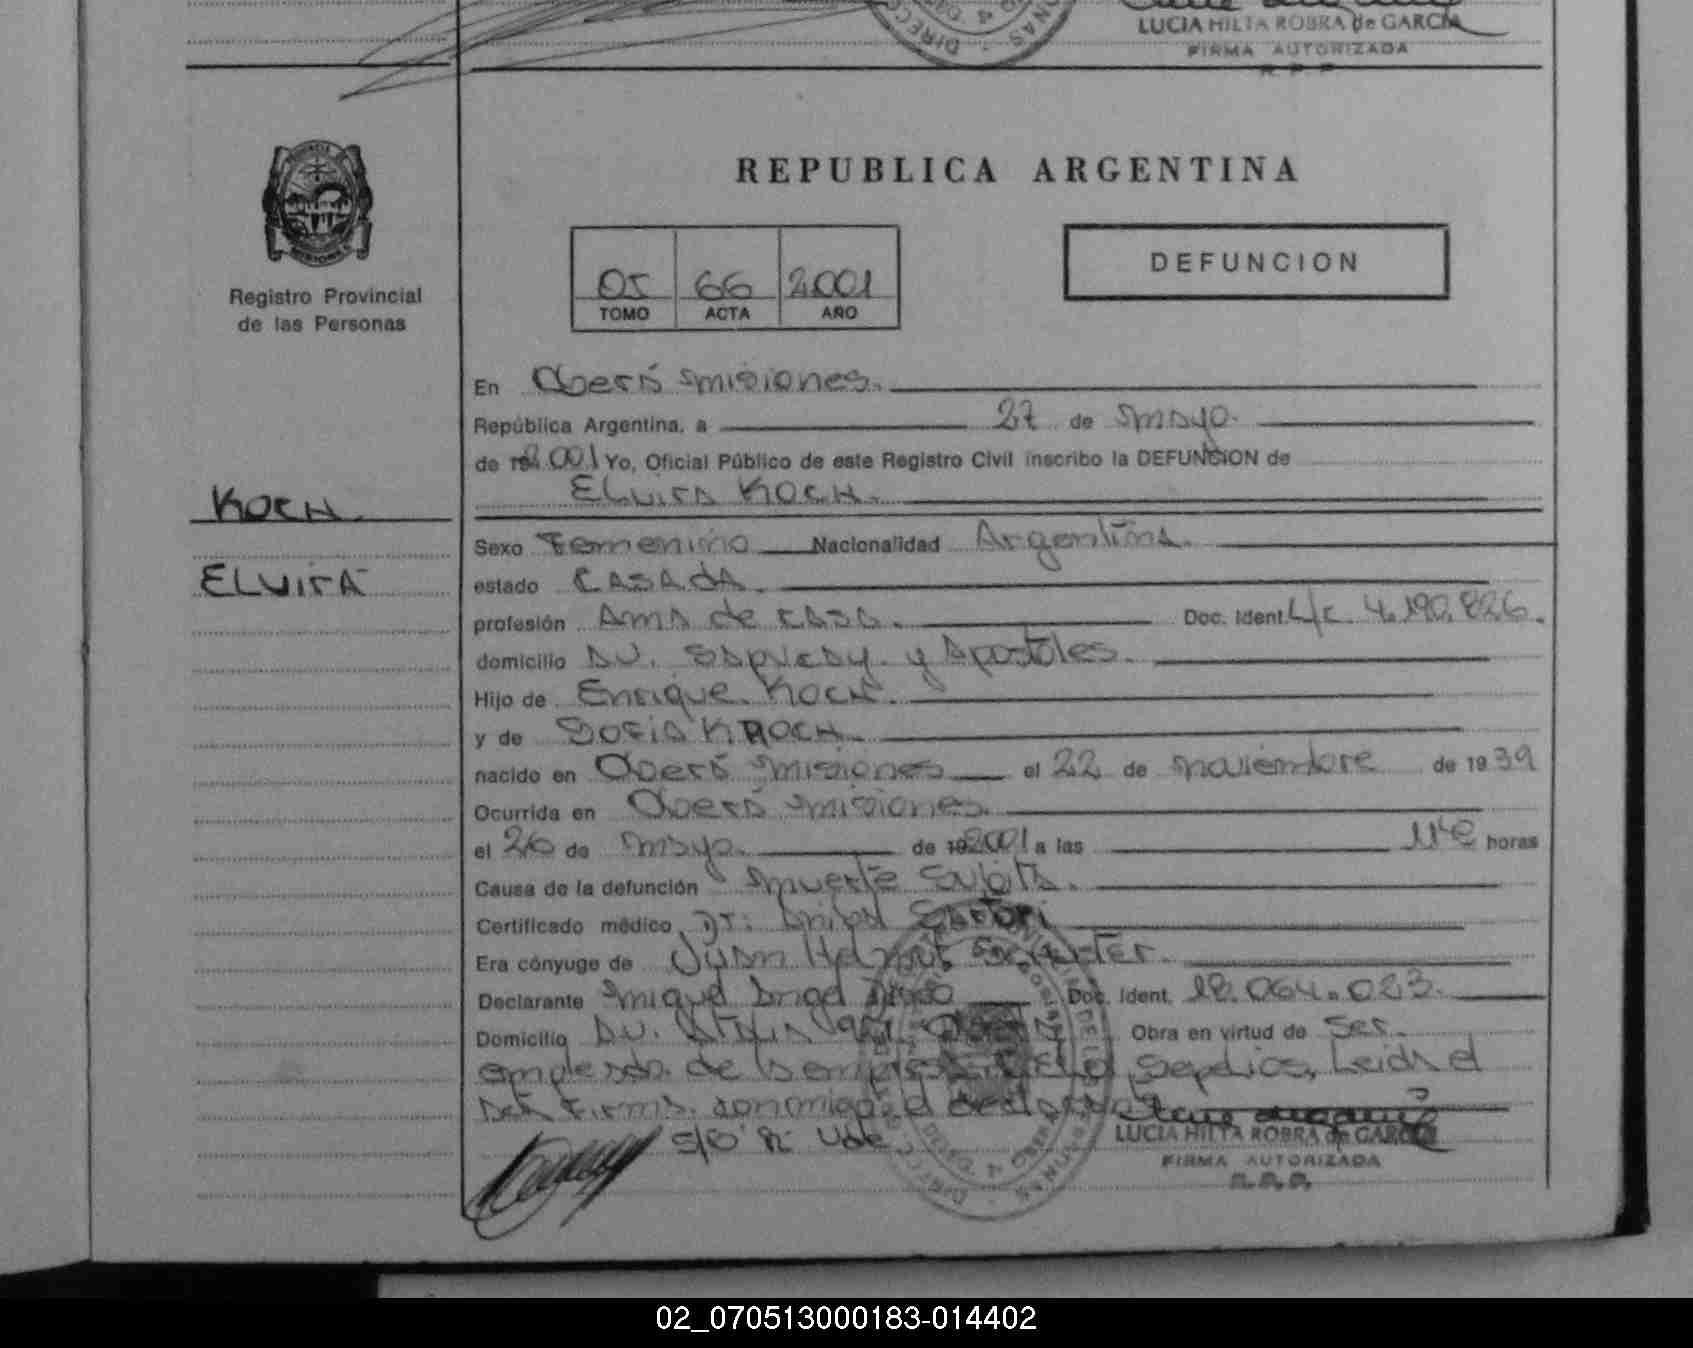 LUCIA HILTA ROBRA de GARCIA
FIRMA AUTORIZADA
R. P. P.
REPUBLICA ARGENTINA
Registro Provincial
de las Personas
05 66 2001
TOMO ACTA AÑO
DEFUNCION
En Oberá Misiones.
República Argentina, a 27 de Mayo.
de 19 2001 Yo, Oficial Público de este Registro Civil inscribo la DEFUNCION de
ELVIRA KOCH.
KOCH.
ELVIRA
Sexo Femenino Nacionalidad Argentina.
estado CASAdA.
profesión Ama de casa. Doc. Ident. L/c. 4.190.826.
domicilio AV. y Apostoles.
Hijo de Enrique Koch.
y de Sofia KROCH.
nacido en Oberá Misiones el 22 de noviembre de 19 39
Ocurrida en Oberá Misiones.
el 26 de Mayo. de 19 2001 a las horas
Causa de la defunción Muerte Subita.
Certificado médico Dr: Anibal Sartori
Era cónyuge de Juan
Declarante Miguel Angel Doc. Ident. 18.064.023.
Domicilio AV. Obra en virtud de Ser.
empleado de la empresa Sepelios, Leida el
Acta Firma conmigo el declarante
S/O R: Vde
LUCIA HILTA ROBRA de GARCIA
FIRMA AUTORIZADA
R. P. P.
02_070513000183-014402